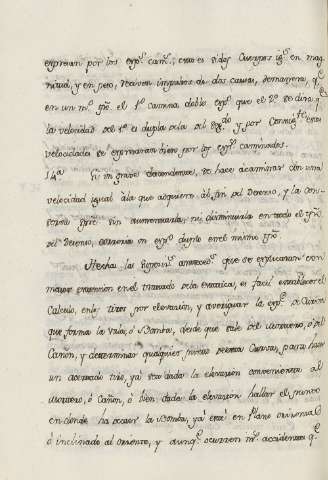 expresan por los esp.s cam.s; como es si dos Cuerpos ig.s en mag
nitud, y en peso, reciven impulsos de dos causas, demanera, q.e
en un m.o tpo. el 1.o camina doble esp.o que el 2.o se dira, q.e
la velocidad del 1.o es dupla de la del seg.do y por
velocidades se expresaran bien por los esp.s caminados.
14.a Si un grave descendente, se hace acaminar con una
velocidad igual ála que adquiere al fin del Descenso, y la con-
serva sin aumentarla, ni disminuirla en todo el tpo.
del Descenso, correria un esp.o duplo en el mismo tpo.
Hechas las anteced.s que se explicaran con
mayor extension en el tratado de la estatica, es facil establecer el
Calculo, en los tiros por elevacion, y averiguar la
que forma la vala, ó Bomba, desde que sale del Mortero, ó del
Cañon, y determinar qualquier punto de esta Curva, para hacer
un acertado tiro, yá sea dada la elevacion conveniente al
Mortero, ó Cañon, ó bien dada la elevacion hallar el punto
en donde ha de caer la Bomba, yá esté en Plano orizontal
ó inclinado al orizonte, y aunq.e ocurren m.s accidentes q.e